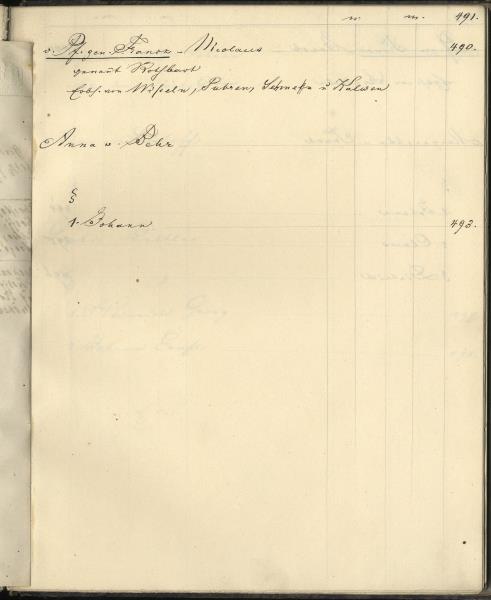 w. m. 491.
v. Pf. gen. Franck - Nicolaus 490.
genant Rothbart
Erbh. von Wisseln, Subren, u Kalwen
Anna v. Behr
§
1. Johann 493.